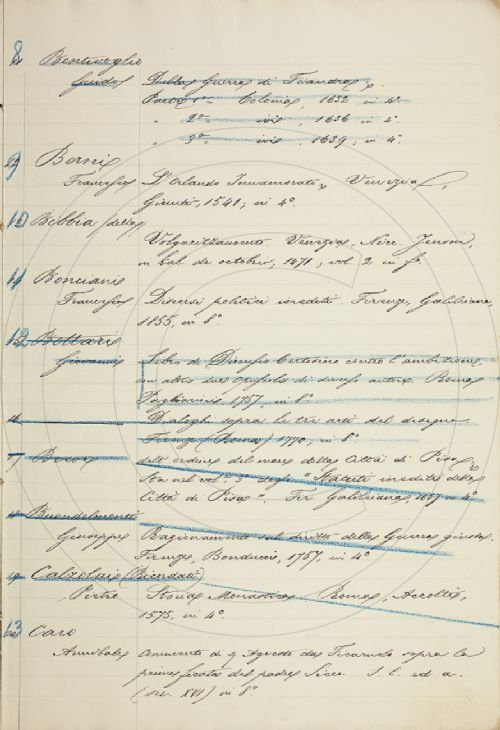 8 Bentivoglio
Guido Della Guerra di Fiandra.
Parte 1ª Colonia, 1632, in 4º.
" 2ª ivi, 1636 in 4º.
" 3ª ivi, 1639, in 4º.
9 Berni
Francesco L'Orlando Innamorato, Venezia,
Giunti, 1541, in 4º.
10 Bibbia (della)
Volgarizzamento. Venezia, Nic. Jenson,
in kal. de octobrio, 1471, vol. 2 in fº
11 Bonciani
Francesco Discorsi politici inediti. Firenze, Galileiana,
1855, in 8º.
12 Bottari
Giovanni Libro di Dionisio Certosino contro l'ambizione,
con altri due opuscoli di diversi autori. Roma
Pagliarini 1757, in 8º.
Dialoghi sopra le tre arti del disegno.
Firenze (Roma) 1770, in 8º.
dell'ordine del mare della Città di Pisa,
Sta nel vol. 3º degli "Statuti inediti della
Città di Pisa". Fir. Galileiana 1857 in 4º
Buondelmonti
Giuseppe Ragionamento sul diritto della Guerra giusta.
Firenze, Bonducci, 1757, in 4º
Calzolai (Ricordati)
Pietro Storia Monastica Roma, Accolti,
1575, in 4º.
13 Caro
Annibale Commento di Ser Agresto da Ficaruolo sopra la
prima ficata del padre Siceo. S. l. ed a.
(sec. XVI) in 8º